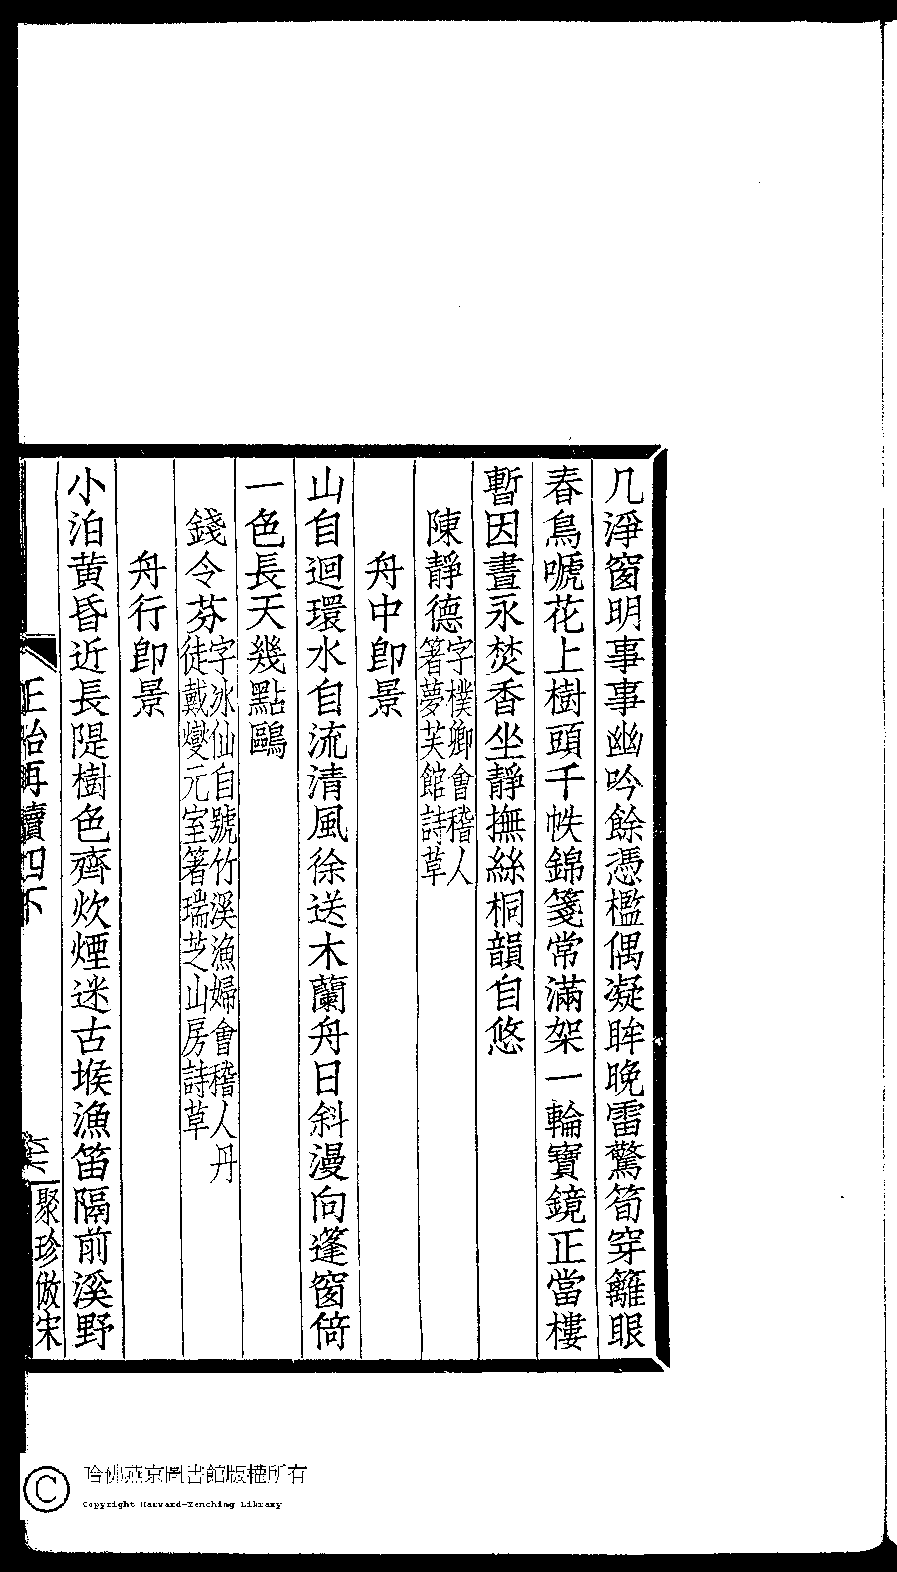 几淨窗明事事幽吟餘憑檻偶凝眸晚雷驚筍穿籬眼
春鳥嗁花上樹頭千帙錦箋常滿架一輪寶鏡正當樓
暫因晝永焚香坐靜撫絲桐韻自悠
陳靜德字樸卿會稽人
箸夢芙館詩草
舟中卽景
山自迴環水自流清風徐送木蘭舟日斜漫向蓬窗倚
一色長天幾點鷗
錢令芬字冰仙自號竹溪漁婦會稽人丹
徒戴燮元室箸瑞芝山房詩草
舟行卽景
小泊黃昏近長隄樹色齊炊煙迷古堠漁笛隔前溪野
正始再續四下
聚珍倣宋
哈佛燕京圖書館版權所有
Copyright Harvard-Yenching Library